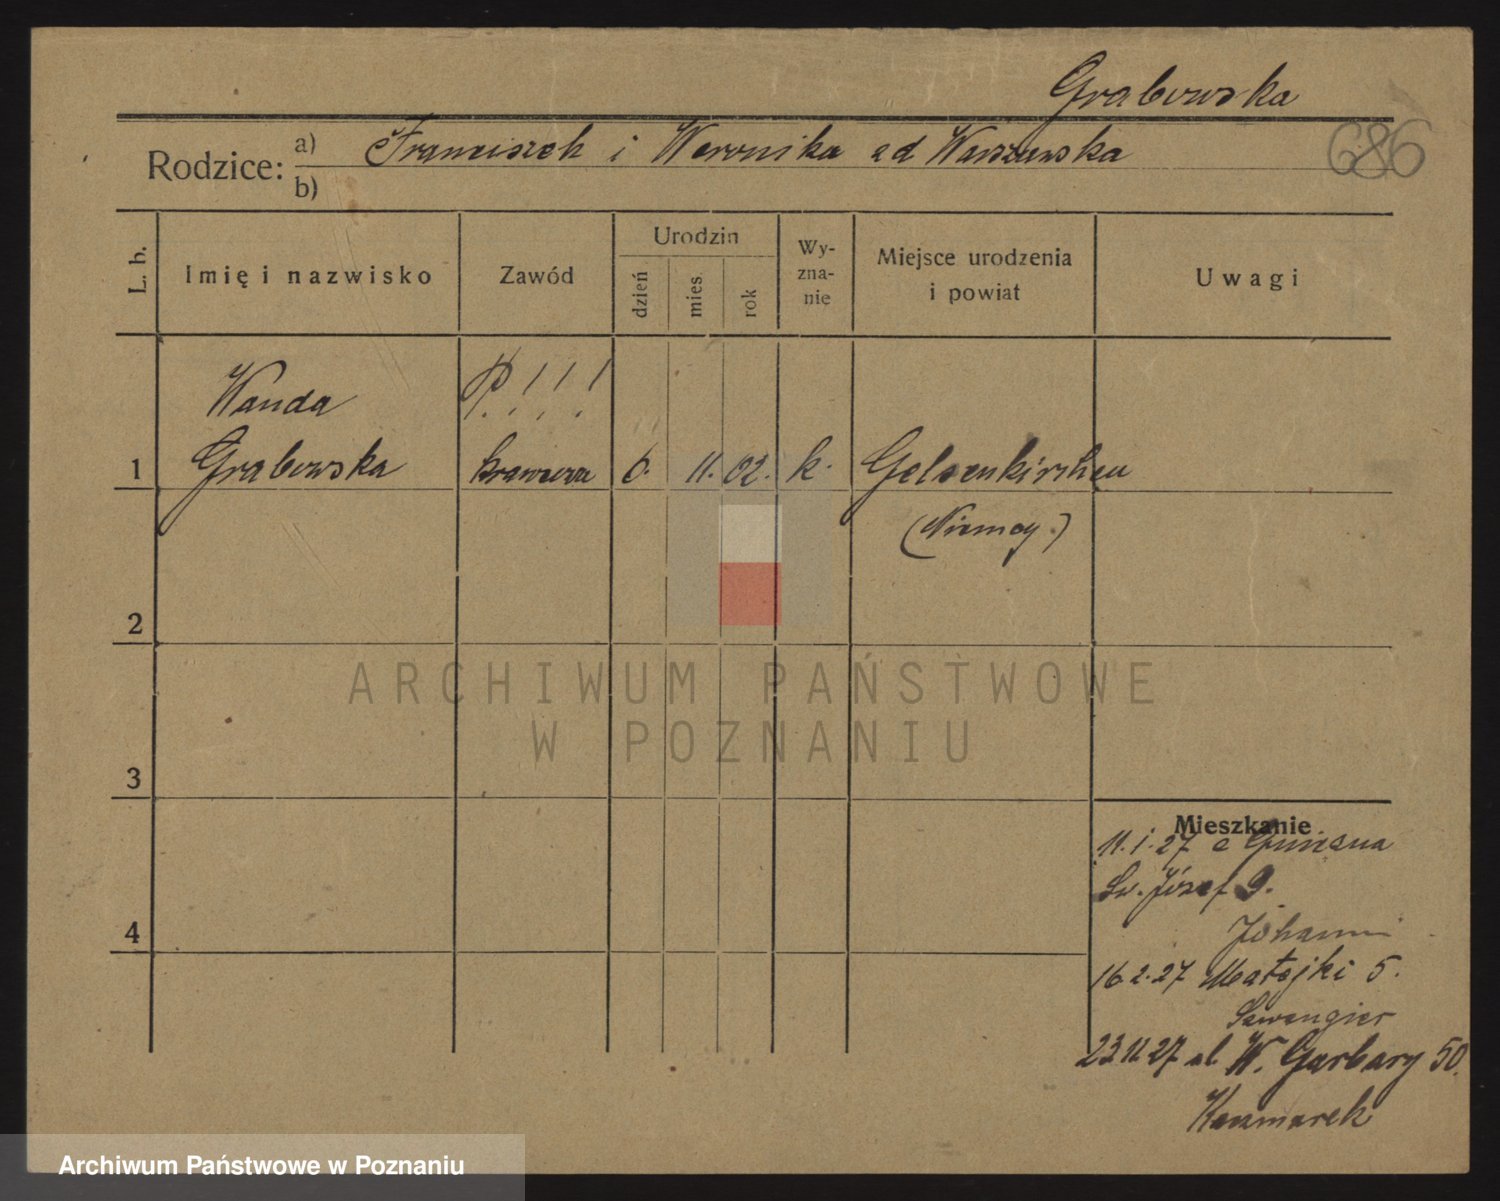 Grabowska
686
Rodzice: a) Franciszek i Weronika ad Warszawska
b)
L. b.
Imię i nazwisko
Zawód
Urodzin
dzień
mies
rok
Wy-
zna-
nie
Miejsce urodzenia
i powiat
Uwagi
Wanda
P!!!
1 Grabowska krawcowa 6. 11. 02. k. Gelsenkirchen
(Niemcy.)
2
3
4
Mieszkanie
11.1.27 z Gniezna
Św. Józef 9.
16.2.27 Matejki 5.
23 11 27 ul. W. Garbary 50.
Kaczmarek
ARCHIWUM PAŃSTWOWE
W POZNANIU
Archiwum Państwowe w Poznaniu